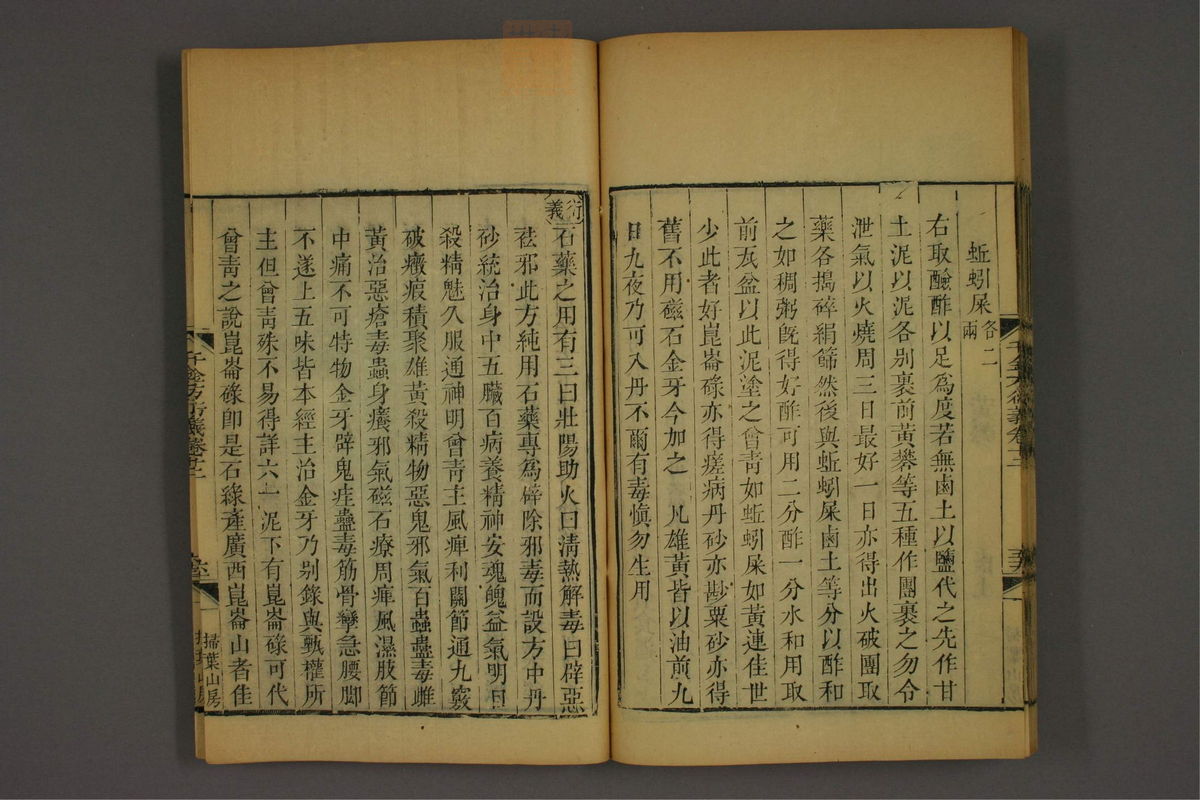 蚯蚓屎各二兩
右取釅酢以足為度若無鹵土以鹽代之先作甘
土泥以泥各別裹前黃礬等五種作團裹之勿令
泄氣以火燒周三日最好一日亦得出火破團取
藥各搗碎絹篩然後與蚯蚓屎鹵土等分以酢和
之如稠粥旣得好酢可用二分酢一分水和用取
前瓦盆以此泥塗之曾青如蚯蚓屎如黃連佳世
少此者好崑崙碌亦得瘥病丹砂亦尠粟砂亦得
舊不用磁石金牙今加之 凡雄黃皆以油煎九
日九夜乃可入丹不爾有毒慎勿生用
衍義
石藥之用有三曰壯陽助火曰清熱解毒曰辟惡
祛邪此方純用石藥專為辟除邪毒而設方中丹
砂統治身中五臟百病養精神安魂魄益氣明目
殺精魅久服通神明曾青主風痺利關節通九竅
破癥瘕積聚雄黃殺精物惡鬼邪氣百蟲蠱毒雌
黃治惡瘡毒蟲身癢邪氣磁石療周痺風濕肢節
中痛不可特物金牙辟鬼疰蠱毒筋骨攣急腰脚
不遂上五味皆本經主治金牙乃別錄與甄權所
主但曾青殊不易得詳六一泥下有崑崙碌可代
曾青之說崑崙碌卽是石綠產廣西崑崙山者佳
千金方衍義卷十二
掃葉山房